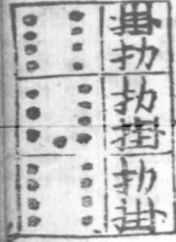 掛扐
扐掛
扐掛